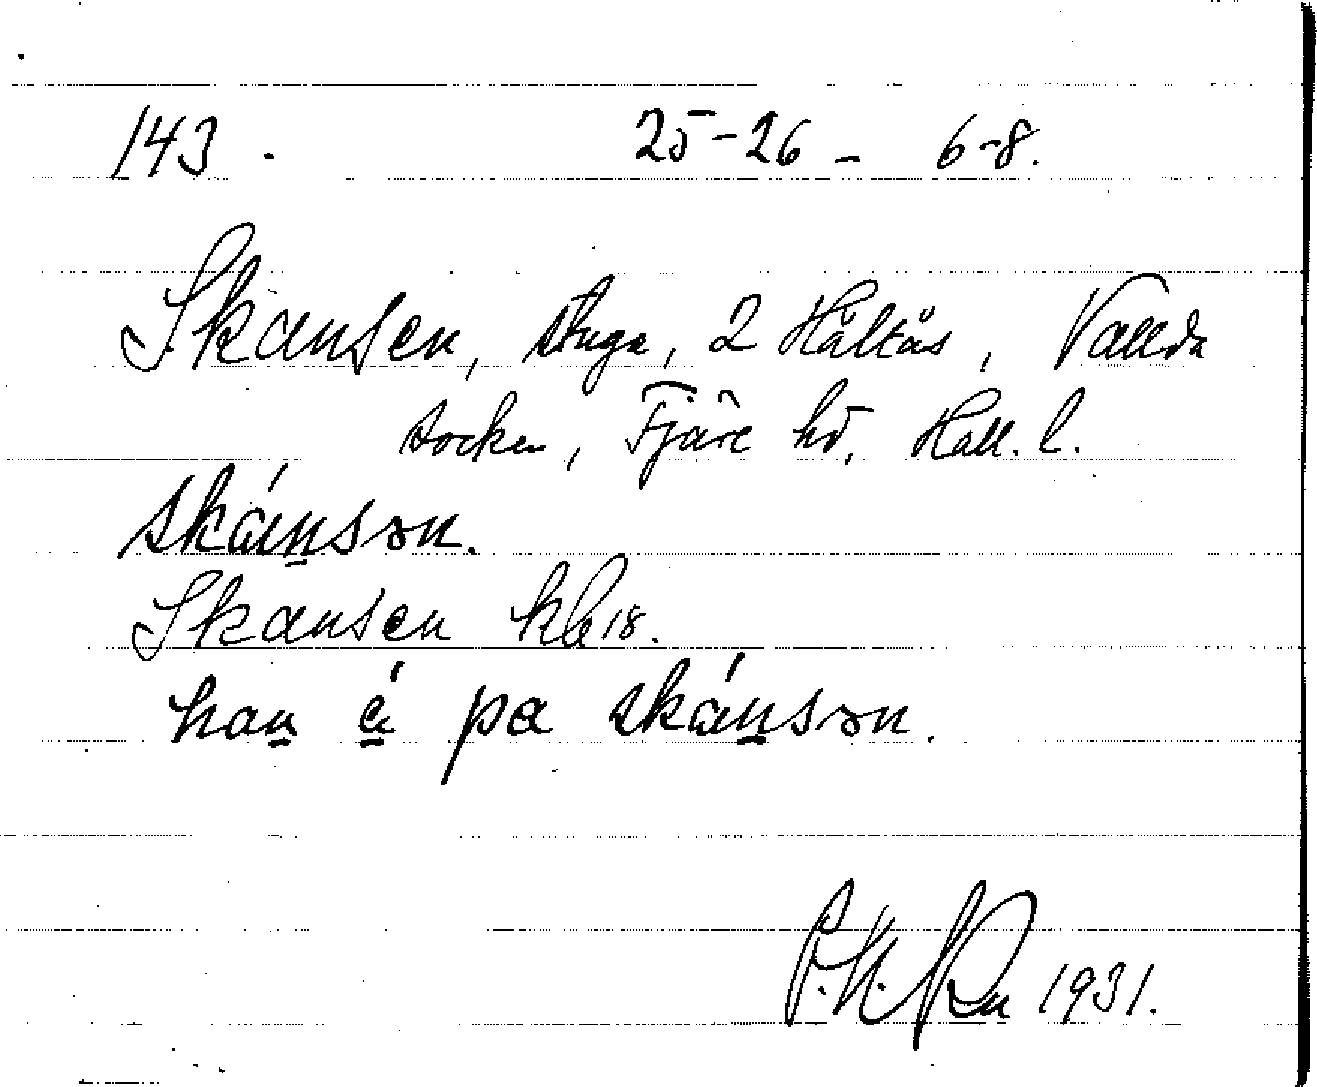 143. 25-26 - 6-8.
Skansen, stuga, 2 Håltås, Vallda
socken, Fjäre hd, Hall. l.
skánsən.
Skansen kbl 18.
han ä́ pa skánsən.
1931.